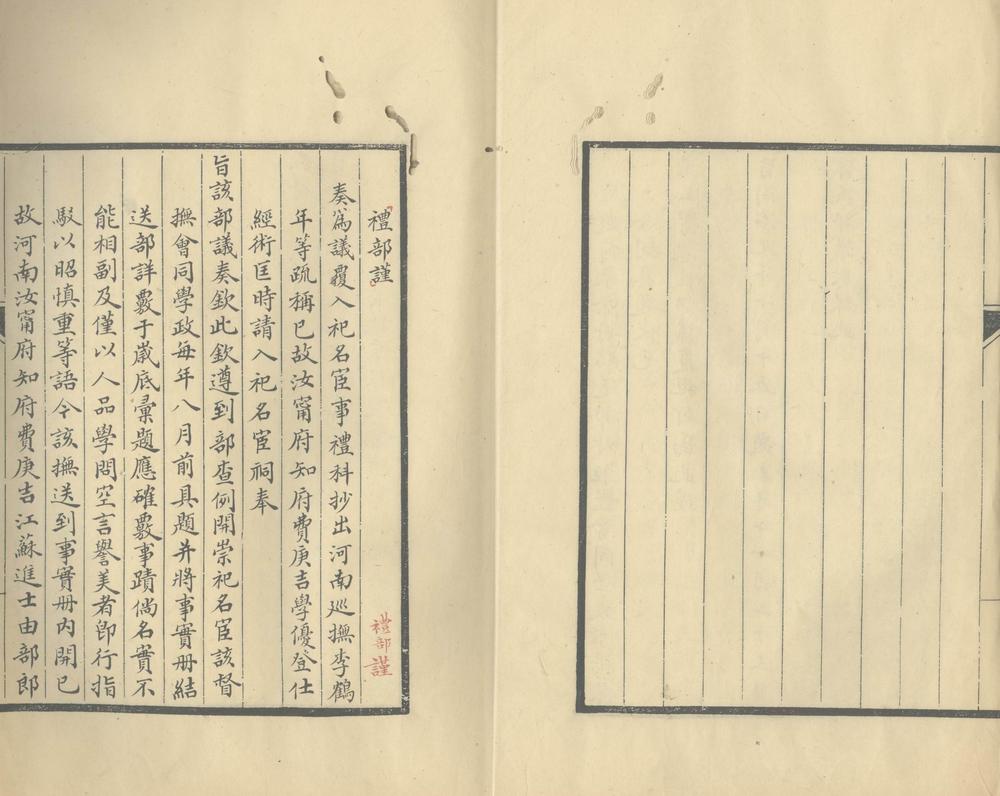 禮部謹
禮部謹
奏爲議覆入祀名宦事禮科抄出河南巡撫李鶴
年等疏稱已故汝甯府知府費庚吉學優登仕
經術匡時請入祀名宦祠奉
旨該部議奏欽此欽遵到部查例開崇祀名宦該督
撫會同學政每年八月前具題并將事實册結
送部詳覈于歲底彙題應確覈事蹟倘名實不
能相副及僅以人品學問空言譽美者卽行指
駁以昭慎重等語今該撫送到事實册内開已
故河南汝甯府知府費庚吉江蘇進士由部郎